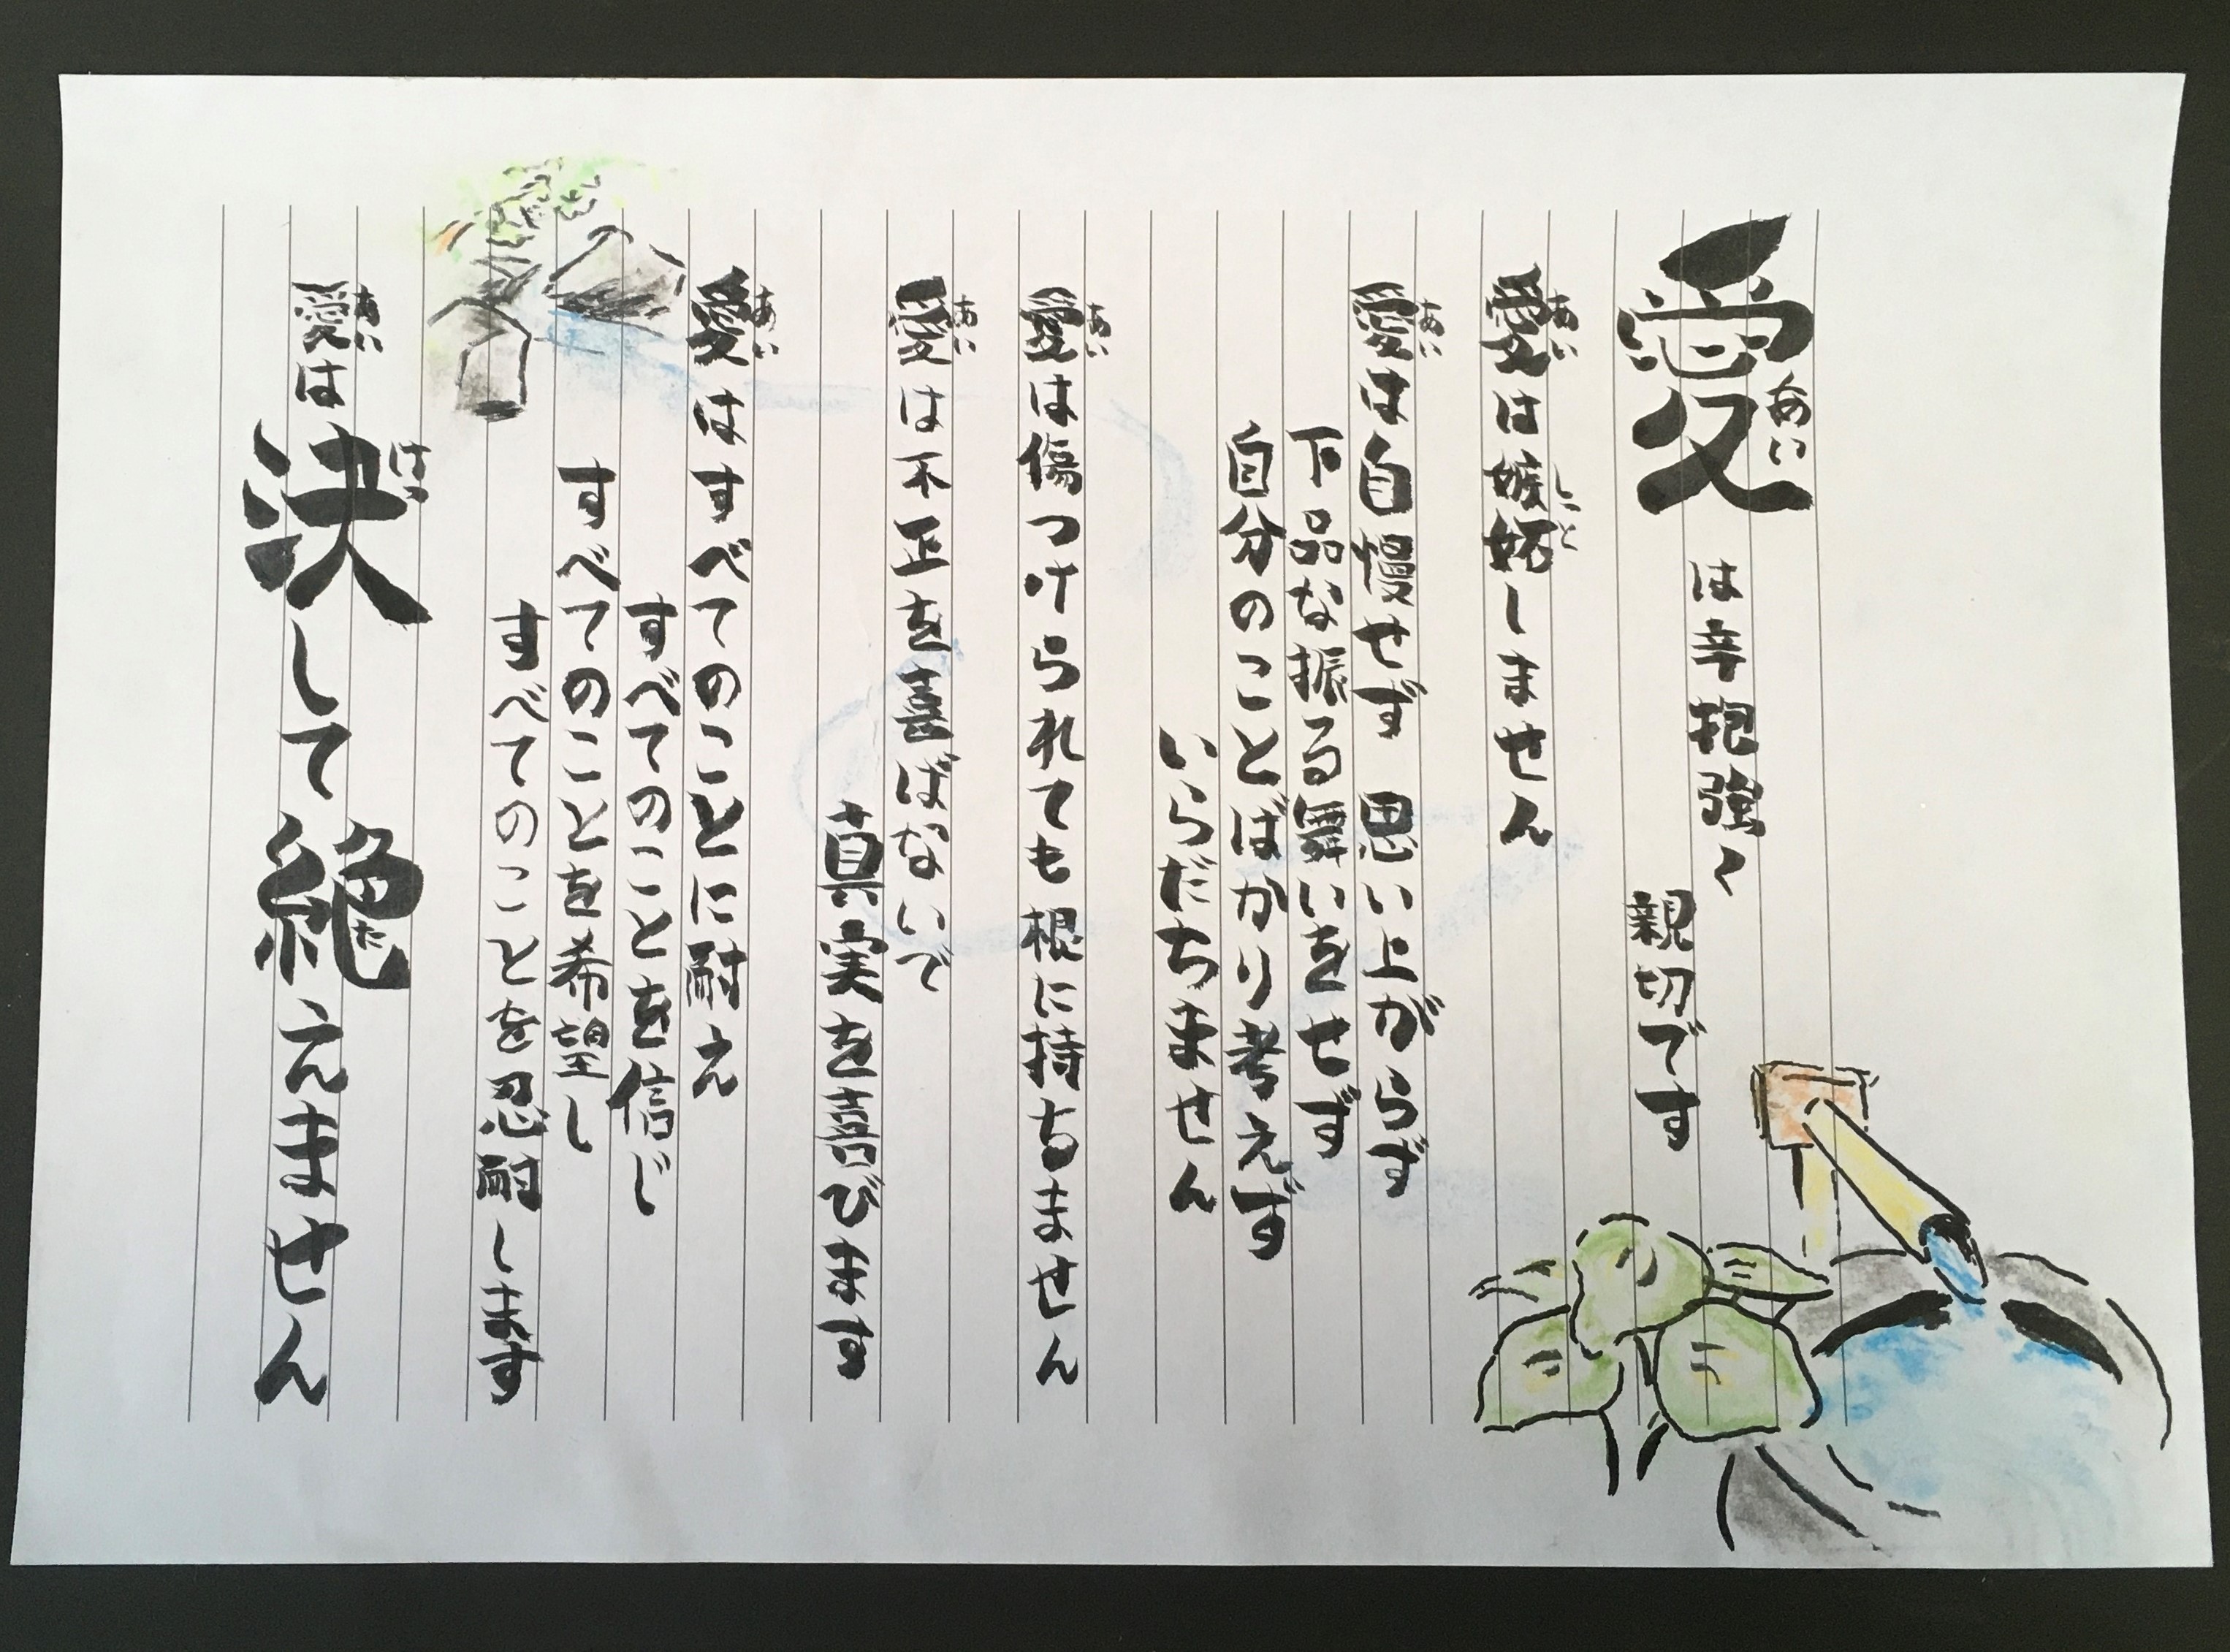 愛は辛抱強く
親切です
愛は嫉妬しません
愛は自慢せず 思い上がらず
下品な振る舞いをせず
自分のことばかり考えず
いらだちません
愛は傷つけられても根に持ちません
愛は不正を喜ばないで
真実を喜びます
愛はすべてのことに耐え
すべてのことを信じ
すべてのことを希望し
すべてのことを忍耐します
愛は決して絶えません